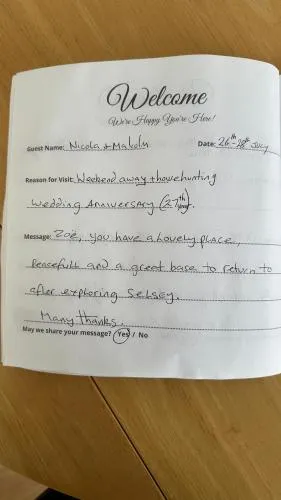 Welcome
We're Happy You're Here!
Guest Name: Nicola + Malcolm Date: 26th-28th July
Reason for Visit: Weekend away + house hunting
Wedding Anniversary (27th year).
Message: Zoë, you have a lovely place,
Peacefull and a great base to return to
after exploring Selsey.
Many thanks.
May we share your message? Yes / No